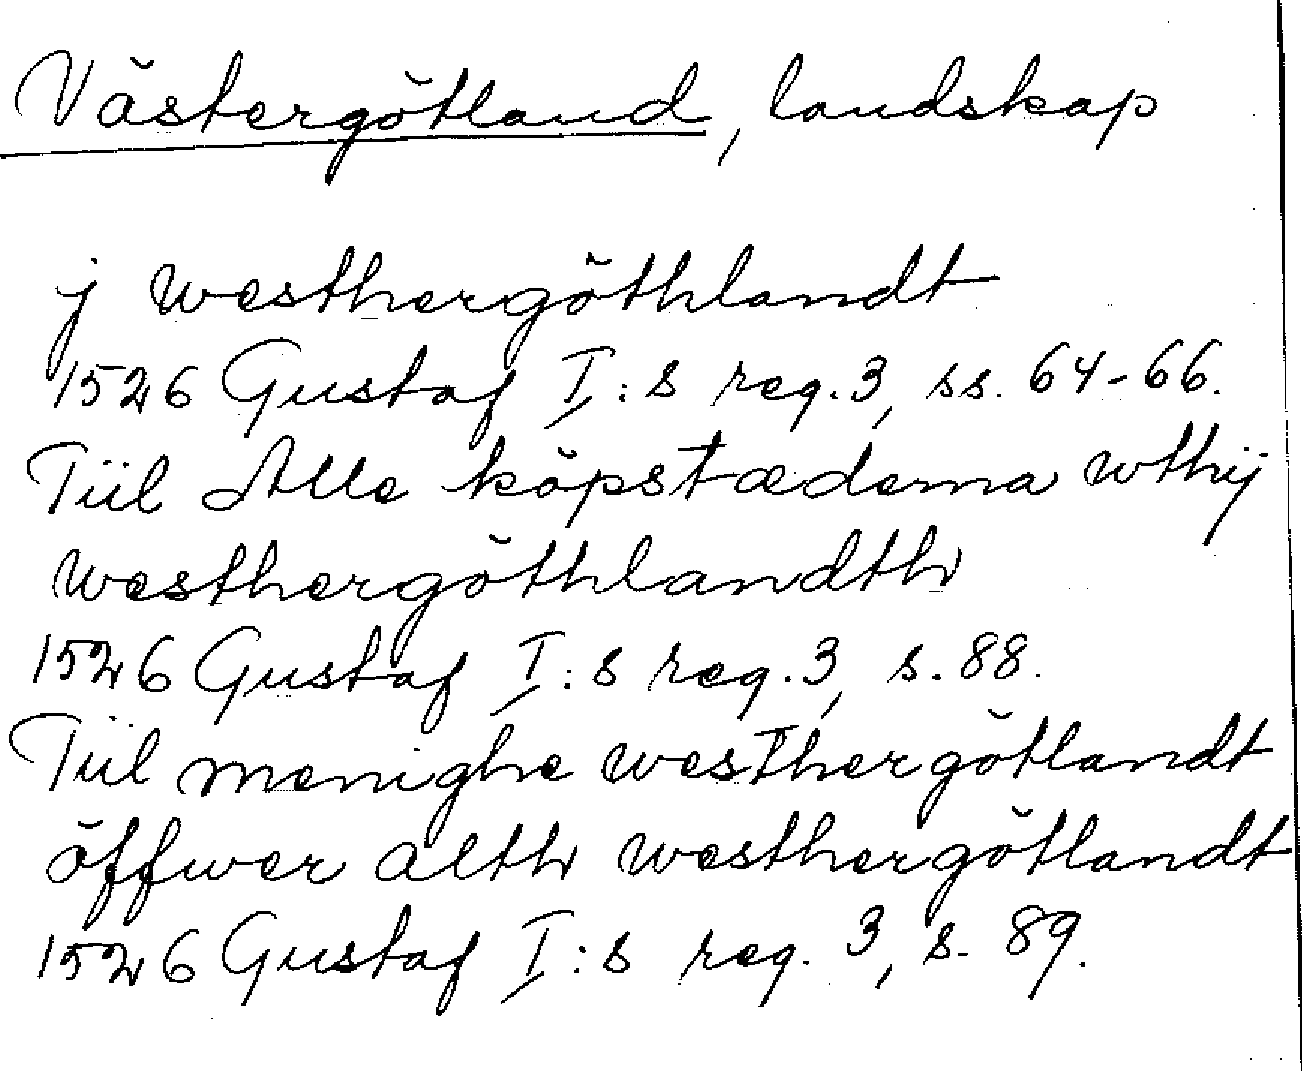 Västergötland, landskap
j westhergöthlandt
1526 Gustaf I:s reg. 3, ss. 64-66.
Tiil Alle köpstæderna wthij
westhergöthlandth
1526 Gustaf I:s reg. 3, s. 88.
Tiil menighe westhergötlandt
öffwer alth westhergötlandt
1526 Gustaf I:s reg. 3, s. 89.